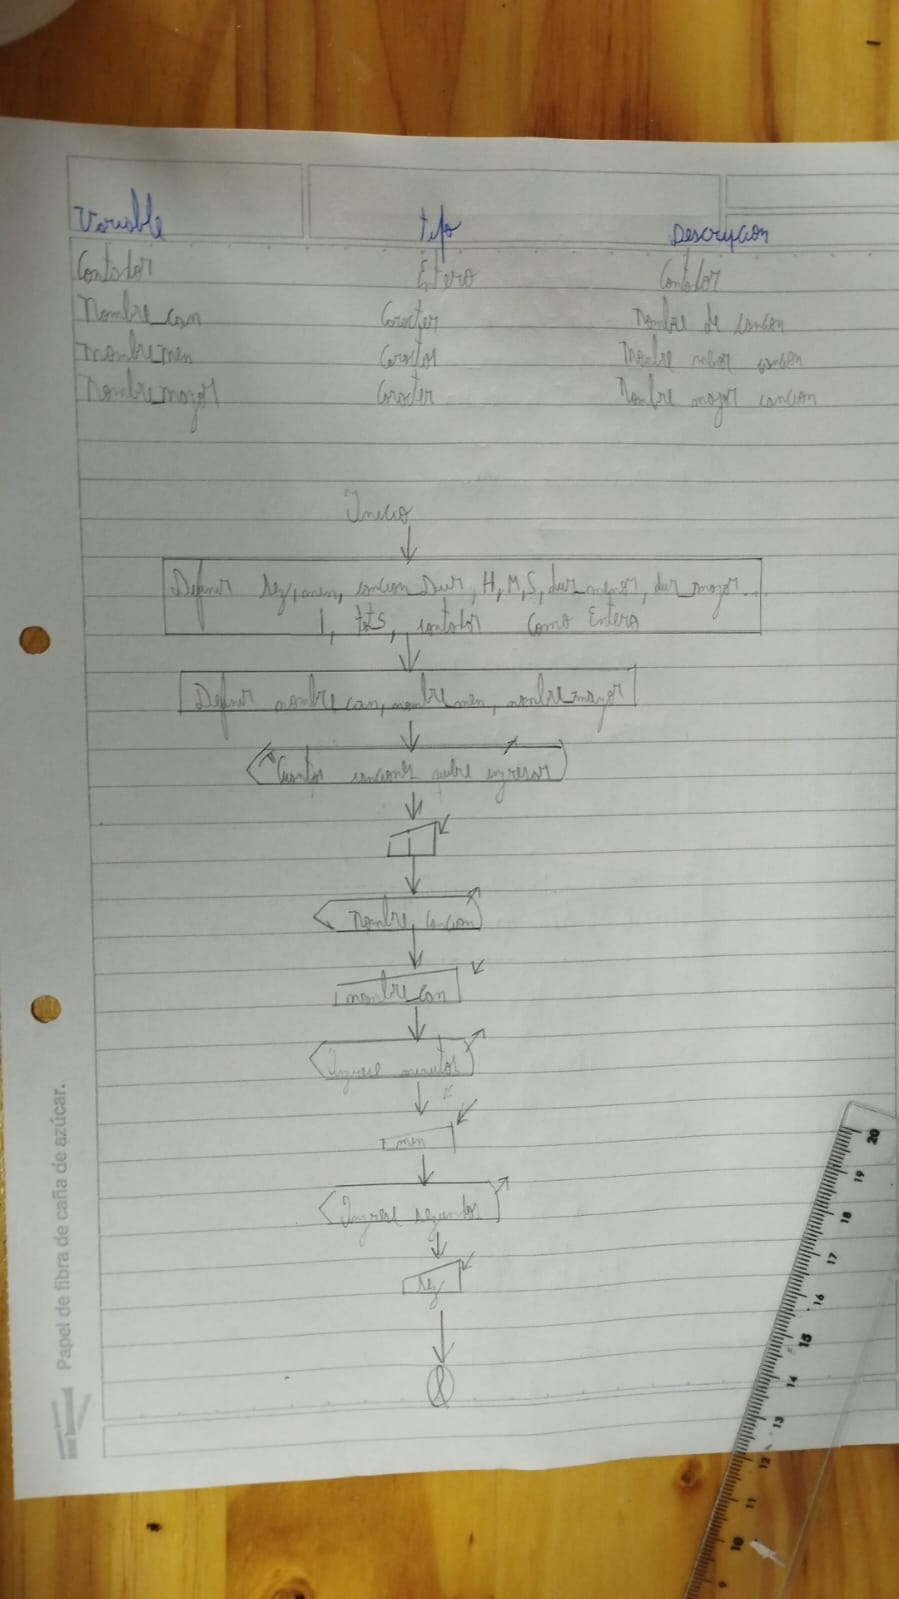 Variable tipo Descripcion
Contador Entero Contador
Nombre_can Caracter Nombre de cancion
nombre_men Caracter Nombre menor cancion
Nombre_mayor Caracter Nombre mayor cancion
Inicio
Definir seg, men, cancion Dur, H, M, S, dur_menor, dur_mayor
I, tots, contador como Entero
Definir nombre_can, nombre_men, nombre_mayor
"Cuantas canciones quiere ingresar
I
Nombre, cancion
nombre_can
Ingrese minutos
men
Ingrese segundos
seg
Papel de fibra de caña de azúcar.
20
19
18
17
16
15
14
13
12
11
10
9